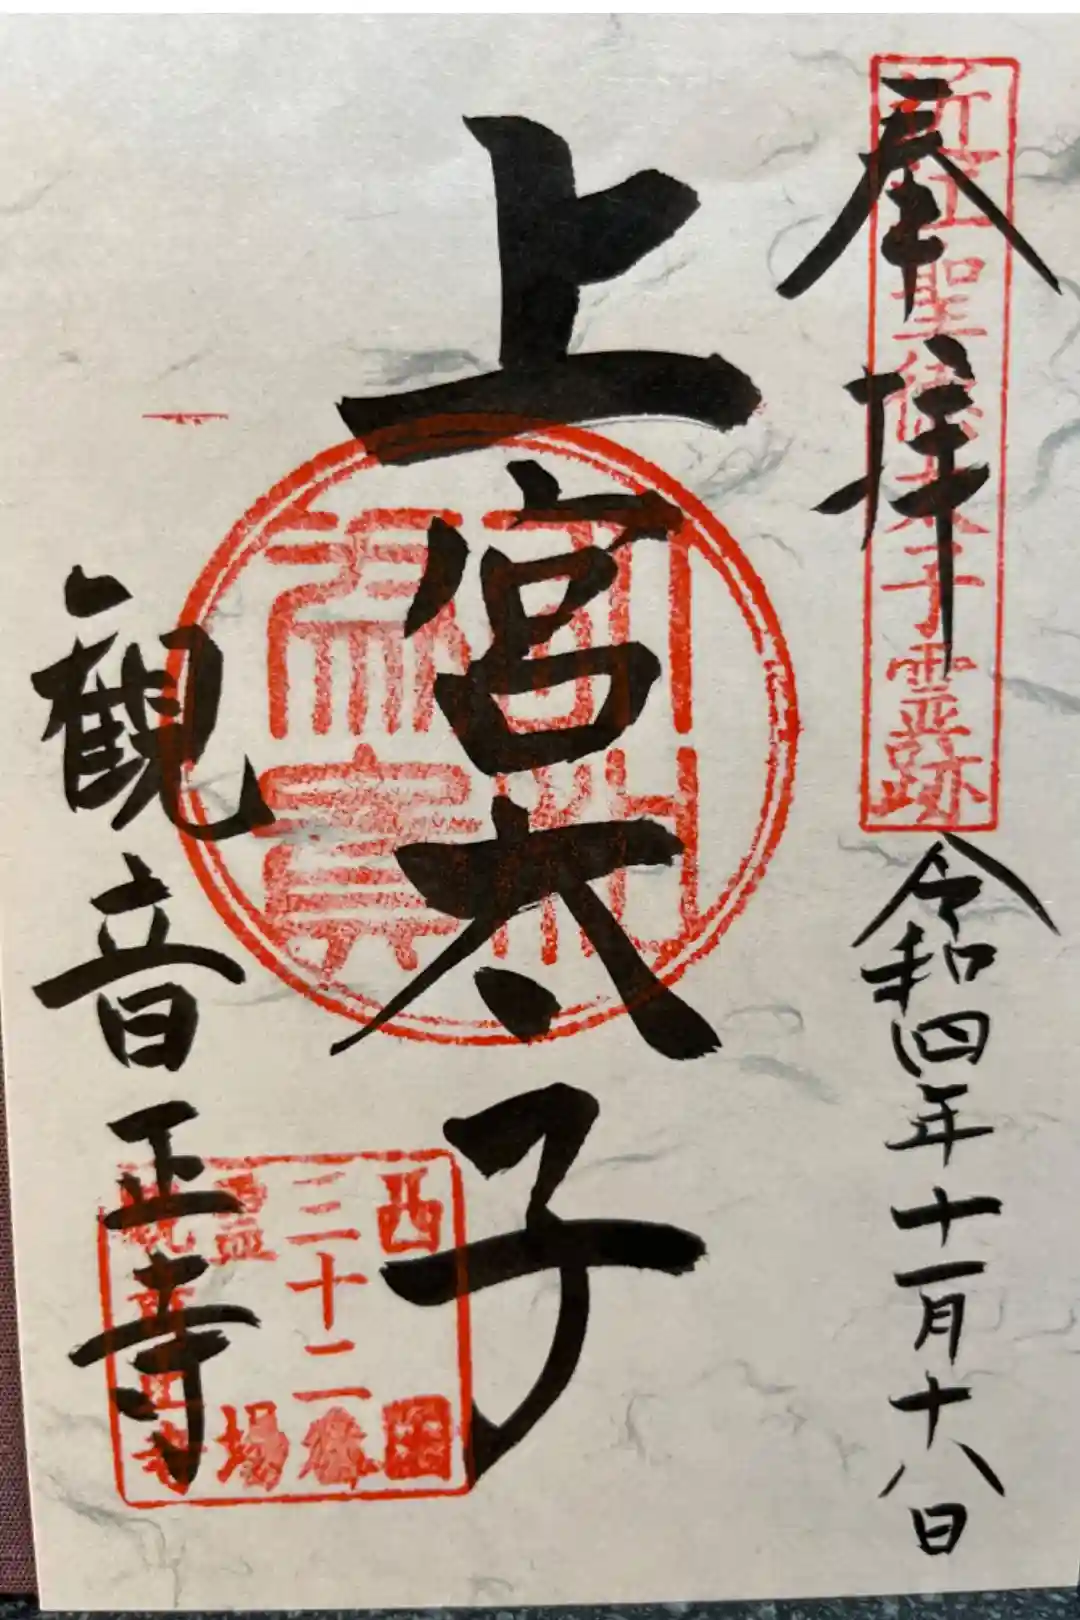 奉拝
近江聖徳太子霊跡
令和四年十一月十八日
上宮太子
観音正寺
西国
三十二番
霊場
観音正寺